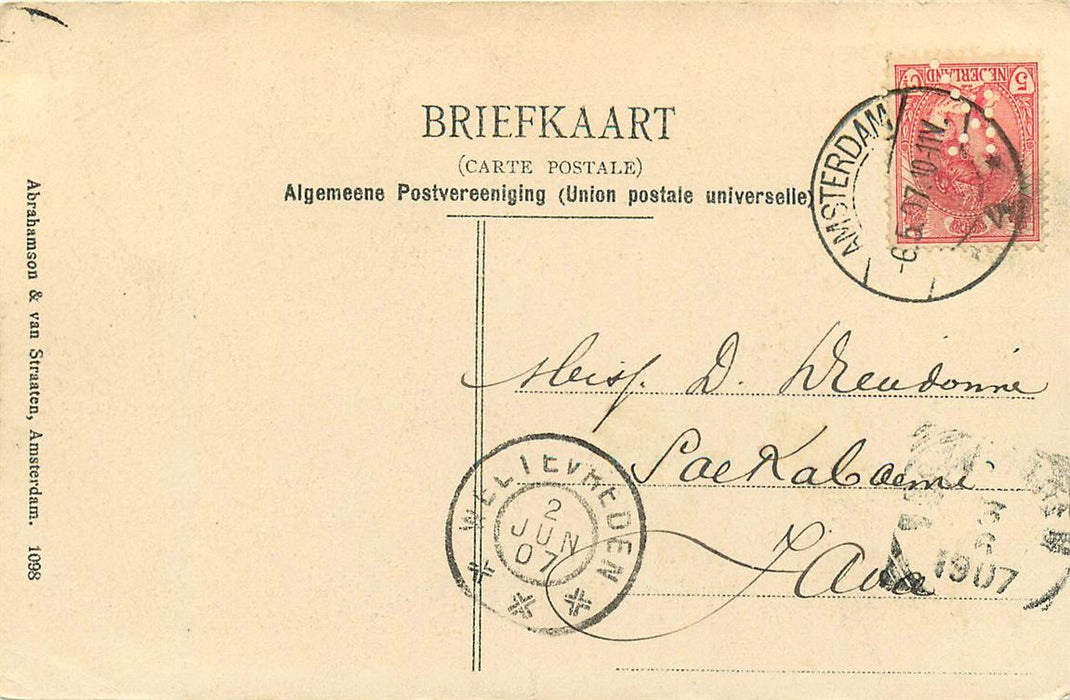 BRIEFKAART
(CARTE POSTALE)
Algemeene Postvereeniging (Union postale universelle)
5 NEDERLAND
AMSTERDAM
-6.5.07.10-11V.
Abrahamson & van Straaten, Amsterdam. 1098
Meisj. D. Dieudonné
Soekaboemi
Java
WELTEVREDEN
2
JUN
07
1907